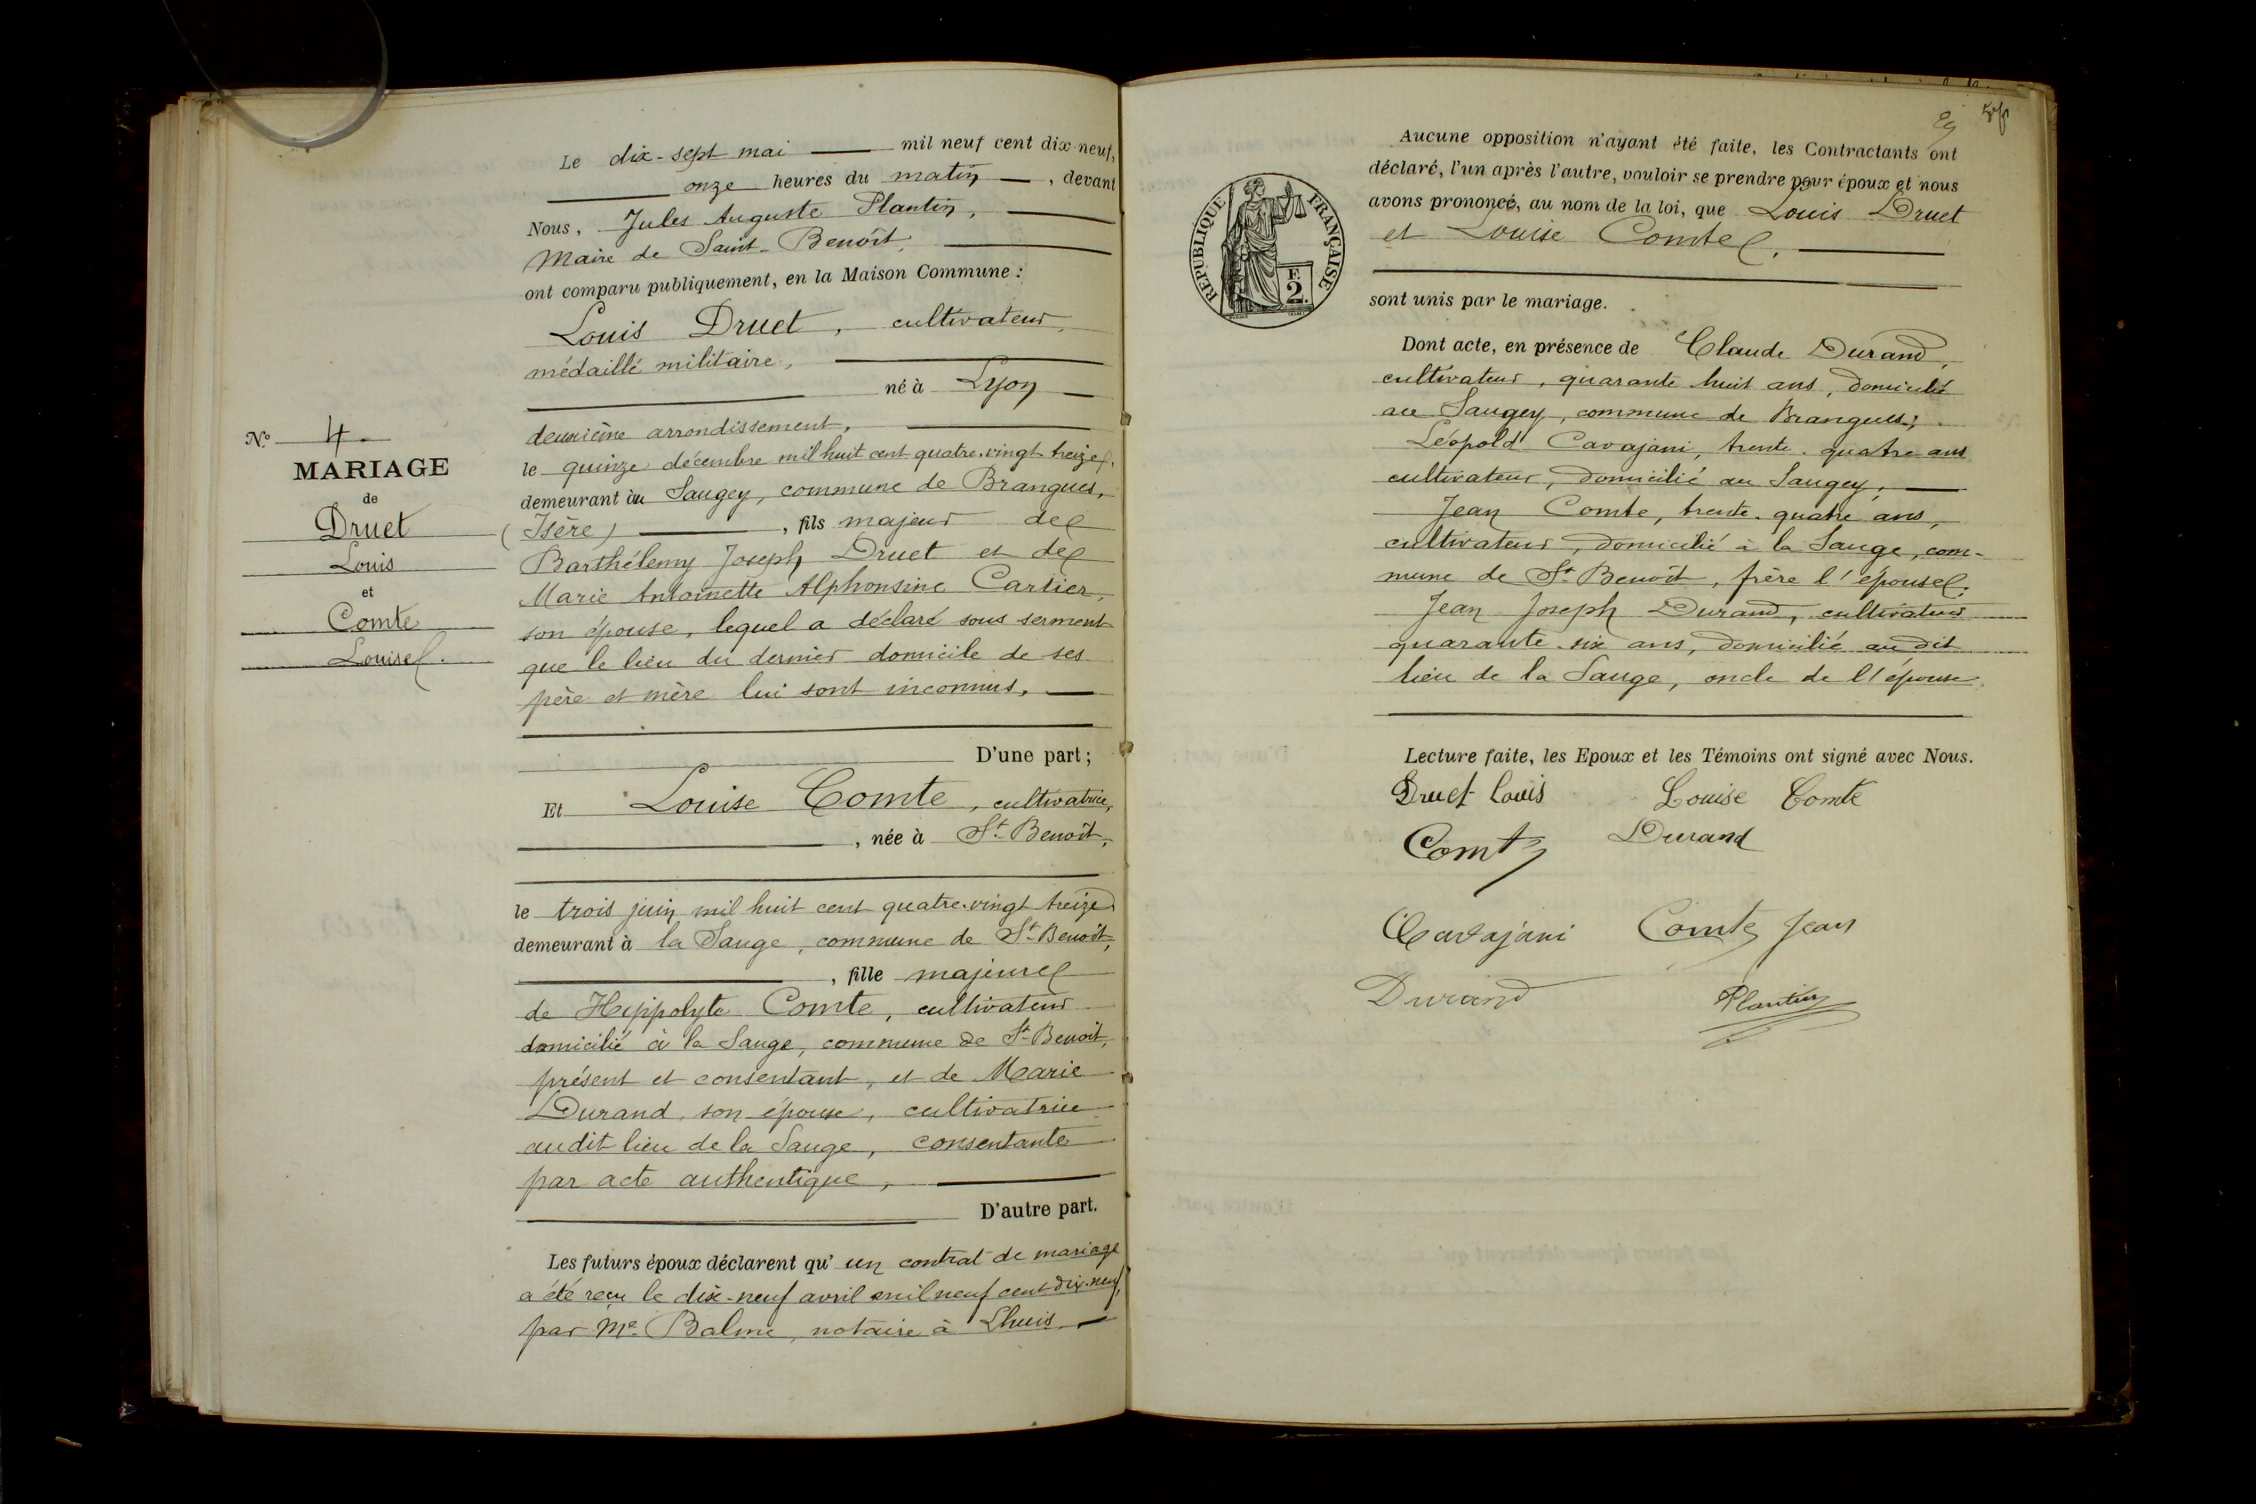 Le dix-sept mai mil neuf cent dix-neuf,
onze heures du matin, devant
Nous, Jules Auguste Plantin,
Maire de Saint-Benoît,
ont comparu publiquement, en la Maison Commune :
Louis Druet, cultivateur,
médaillé militaire,
né à Lyon
deuxième arrondissement,
le quinze décembre mil huit cent quatre-vingt treize,
demeurant au Saugey, commune de Brangues,
(Isère), fils majeur de
Barthélemy Joseph Druet et de
Marie Antoinette Alphonsine Cartier,
son épouse, lequel a déclaré sous serment
que le lieu du dernier domicile de ses
père et mère lui sont inconnus,
D'une part ;
Et Louise Comte, cultivatrice,
, née à St Benoît,
le trois juin mil huit cent quatre-vingt treize
demeurant à la Sauge, commune de St Benoît,
, fille majeure
de Hippolyte Comte, cultivateur
domicilié à la Sauge, commune de St Benoît,
présent et consentant, et de Marie
Durand, son épouse, cultivatrice
audit lieu de la Sauge, consentante
par acte authentique,
D'autre part.
Les futurs époux déclarent qu'un contrat de mariage
a été reçu le dix-neuf avril mil neuf cent dix-neuf,
par Me Balme, notaire à Lhuis
No 4.
MARIAGE
de
Druet
Louis
et
Comte
Louise.
29
RÉPUBLIQUE FRANÇAISE
F.
2.
Aucune opposition n'ayant été faite, les Contractants ont
déclaré, l'un après l'autre, vouloir se prendre pour époux et nous
avons prononcé, au nom de la loi, que Louis Druet
et Louise Comte,
sont unis par le mariage.
Dont acte, en présence de Claude Durand,
cultivateur, quarante huit ans, domicilié
au Saugey, commune de Brangues ;
Léopold Cavajani, trente-quatre ans
cultivateur, domicilié au Saugey,
Jean Comte, trente-quatre ans,
cultivateur, domicilié à la Sauge, com-
mune de St Benoît, frère l'épouse,
Jean Joseph Durand, cultivateur
quarante-six ans, domicilié au dit
lieu de la Sauge, oncle de l'épouse.
Lecture faite, les Epoux et les Témoins ont signé avec Nous.
Druet Louis Louise Comte
Comte Durand
Cavajani Comte Jean
Durand Plantin